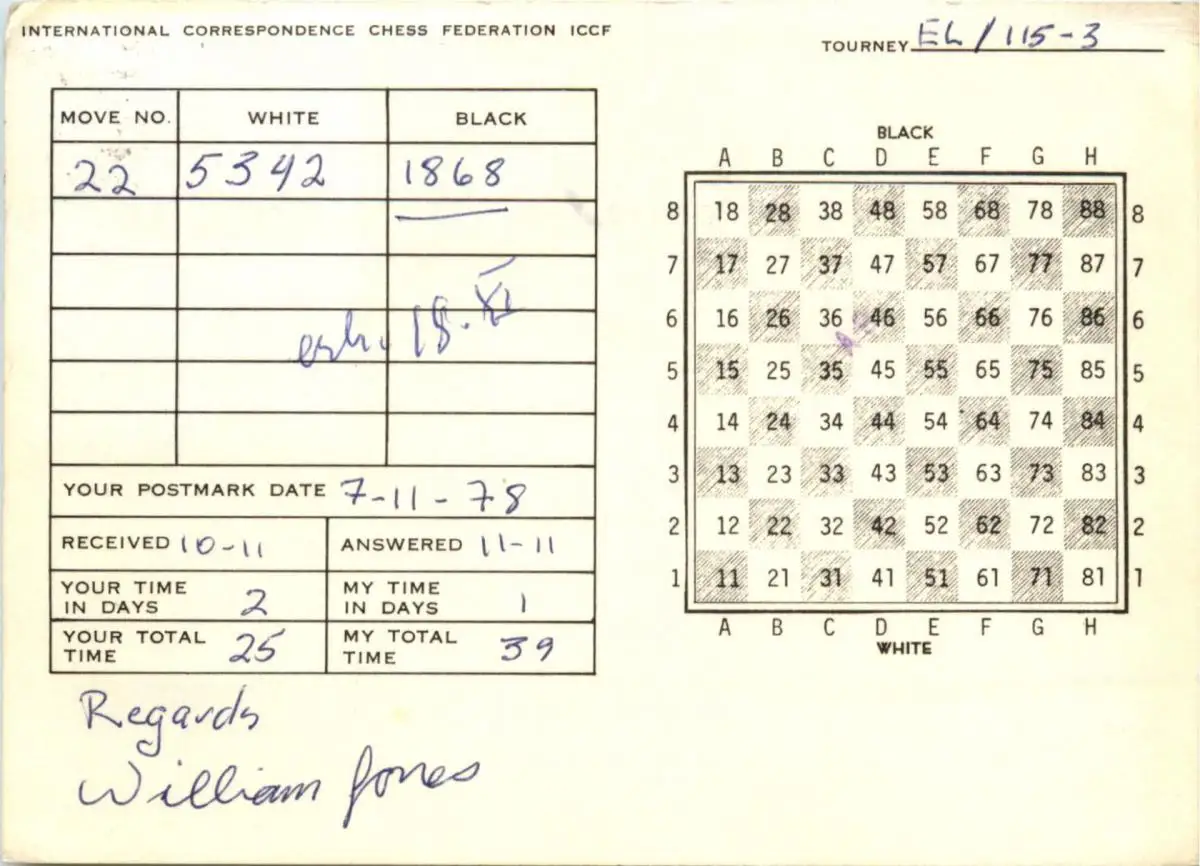 INTERNATIONAL CORRESPONDENCE CHESS FEDERATION ICCF
TOURNEY EL/115-3
MOVE NO. WHITE BLACK
22 5342 1868
erh. 18. XI
YOUR POSTMARK DATE 7-11-78
RECEIVED 10-11 ANSWERED 11-11
YOUR TIME IN DAYS 2 MY TIME IN DAYS 1
YOUR TOTAL TIME 25 MY TOTAL TIME 39
Regards
William Jones
BLACK
A B C D E F G H
8 18 28 38 48 58 68 78 88 8
7 17 27 37 47 57 67 77 87 7
6 16 26 36 46 56 66 76 86 6
5 15 25 35 45 55 65 75 85 5
4 14 24 34 44 54 64 74 84 4
3 13 23 33 43 53 63 73 83 3
2 12 22 32 42 52 62 72 82 2
1 11 21 31 41 51 61 71 81 1
A B C D E F G H
WHITE